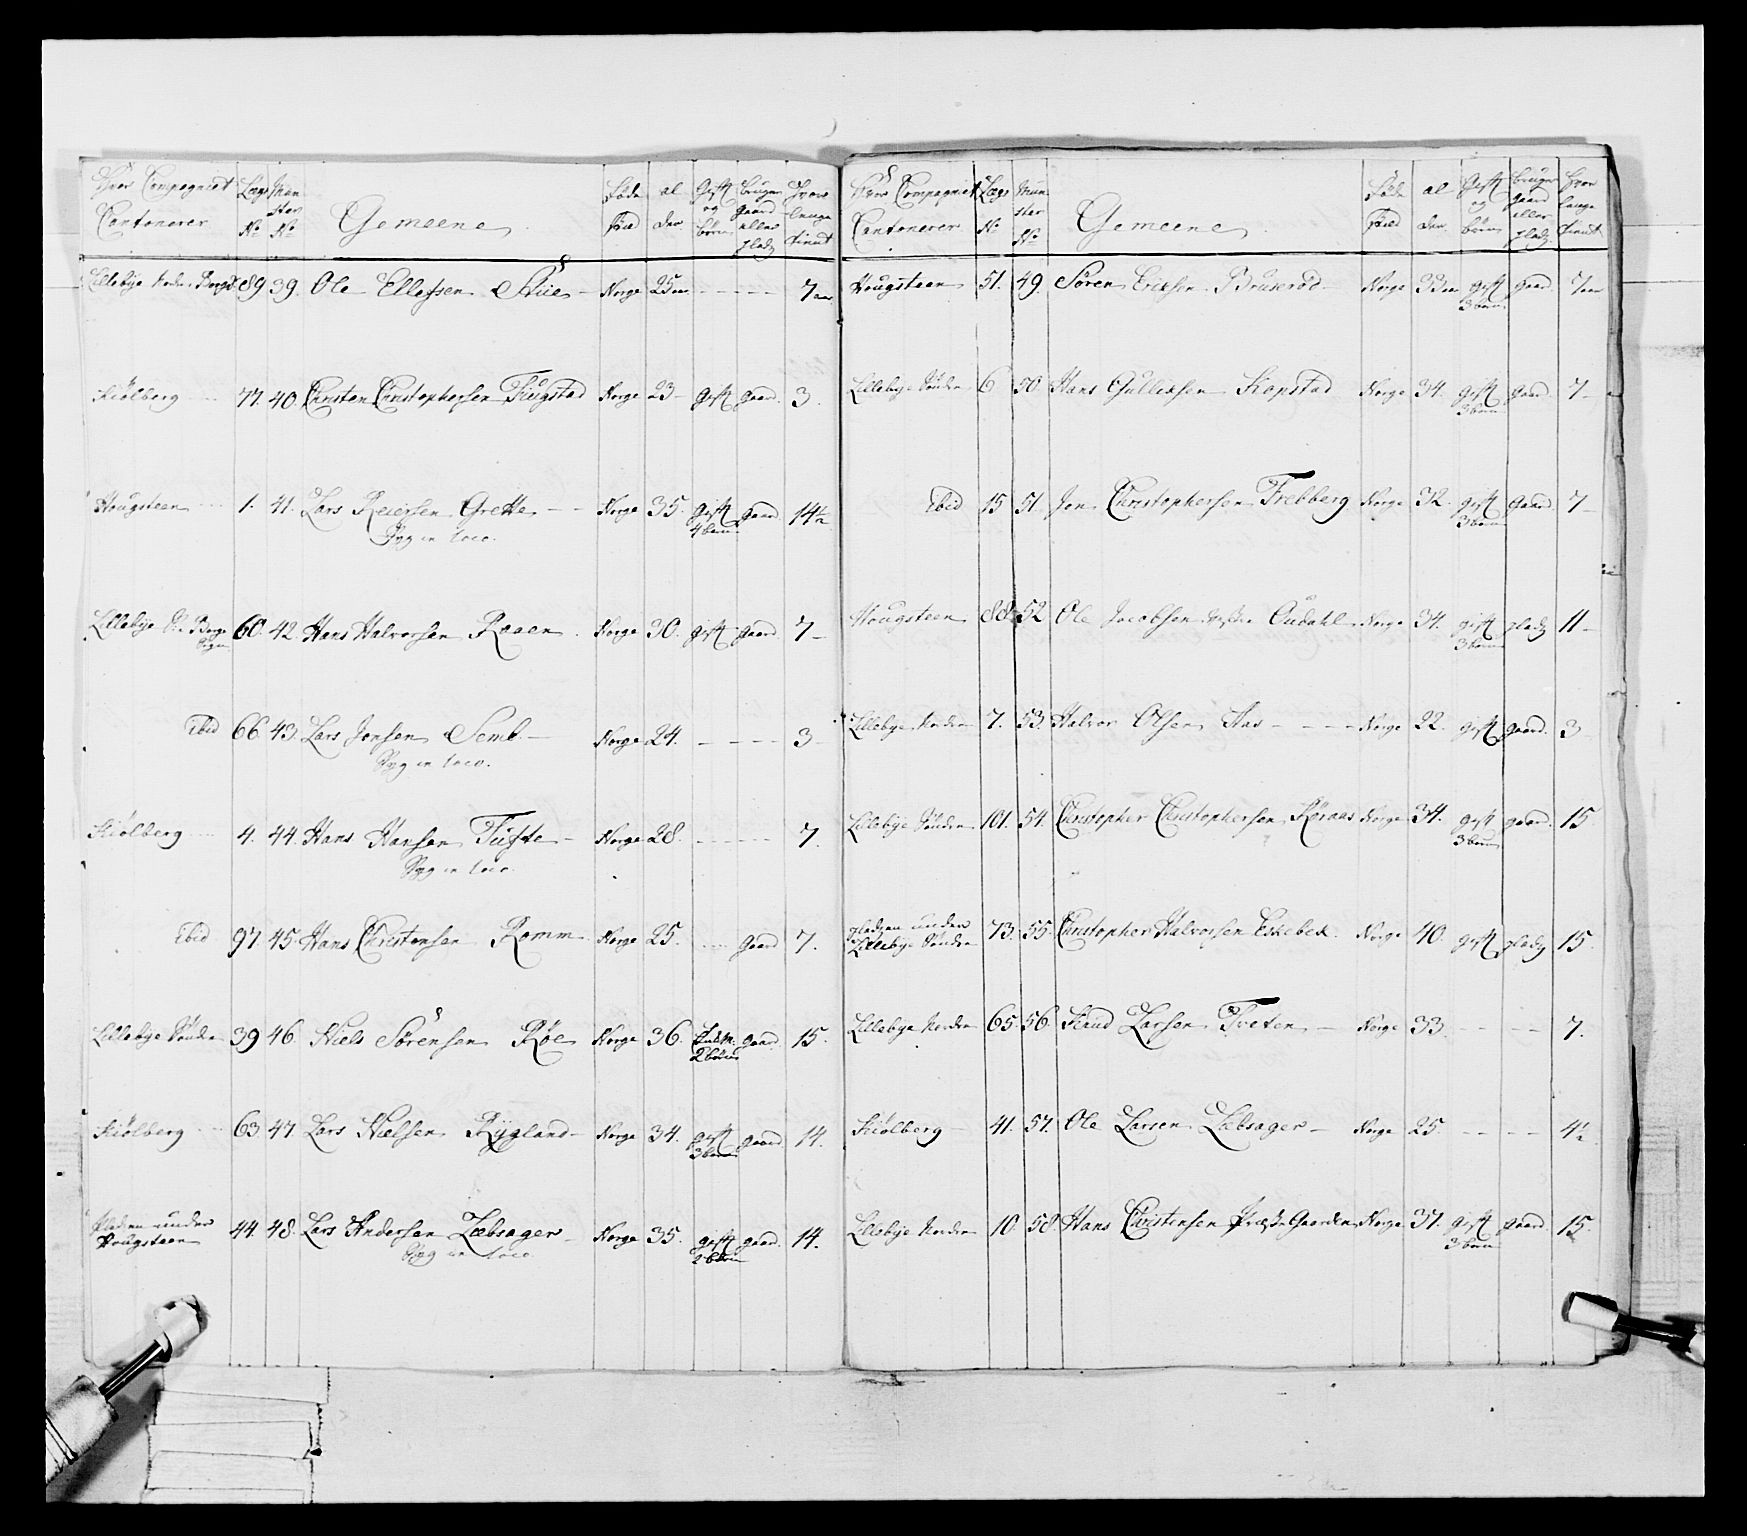 Hvor Compagniet Cantonerer | Lægs No | Mun ster No | Gemeene | Føde stæd | al der | Gift og børn | bruger gaard eller pladz | Hvor længe tient
Lillebye Nordre 89 39. Ole Ellefsen Stue – Norge 25 aar – – – – 7 aar
Kiølberg 77. 40. Christen Christophersen Fugstad Norge 23 – gift gaard. 3.
Hougsteen 1. 41. Lars Reiersen Grette – – Norge 35. gift gaard 14½
4 børn
Syg in loco.
Lillebye 60. 42. Hans Halvorsen Raaen. Norge 30. gift gaard 7 –
Ibid 66. 43. Lars Jonsen Semb – Norge 24. – – – – 3 –
Syg in loco.
Kiølberg 4. 44. Hans Hansen Tufte – Norge 28. – – – – 7.
Syg in loco.
Ibid 97. 45. Hans Christensen Romm Norge 25. gaard 7.
Lillebye Søndre 39 46. Niels Sørensen Røe Norge 36. gaard 15.
2 børn
Kiølberg 63. 47. Lars Nielsen Rygland – Norge 34. gift gaard. 14.
3 børn
Pladsen under
Hougsteen 44. 48. Lars Andersen Læbsager – Norge 35. gift gaard. 14.
2 børn
Syg in loco
Hvor Compagniet Cantonerer | Lægs No | Mun ster No | Gemeene | Føde stæd | al der | Gift og børn | bruger gaard eller pladz | Hvor længe tient
Hougsteen 51. 49. Søren Erichsen Bruserød Norge 33 aar gift gaard 7 aar
3 børn
Lillebye Søndre 6 50. Hans Gulleksen Kopstad Norge 34. gift gaard. 7 –
3 børn
Ibid 15 51. Jon Christophersen Frebberg Norge 32. gift gaard. 7 –
3 børn
Hougsteen 88. 52. Ole Jacobsen Oudahl Norge 34. gift pladz 11 –
3 børn
Lillebye Nordre 7. 53. Halvor Olsen Aas – – – – Norge 22. gift gaard. 3
Lillebye Søndre 101. 54. Christopher Christophersen Røraas Norge 34. gift gaard. 15
3 børn
pladzen under
Lillebye Søndre 73. 55. Christopher Halvorsen Eskebek. Norge 40. gift pladz 15.
Lillebye Nordre 65. 56. Knud Larsen Tveten – Norge 33. – – – – 7.
Kiølberg 41. 57. Ole Larsen Læbsager – Norge 25. – – – – 4½
Lillebye Nordre 10. 58. Hans Christensen Præste Gaarden Norge 37. gift gaard. 15.
3 børn